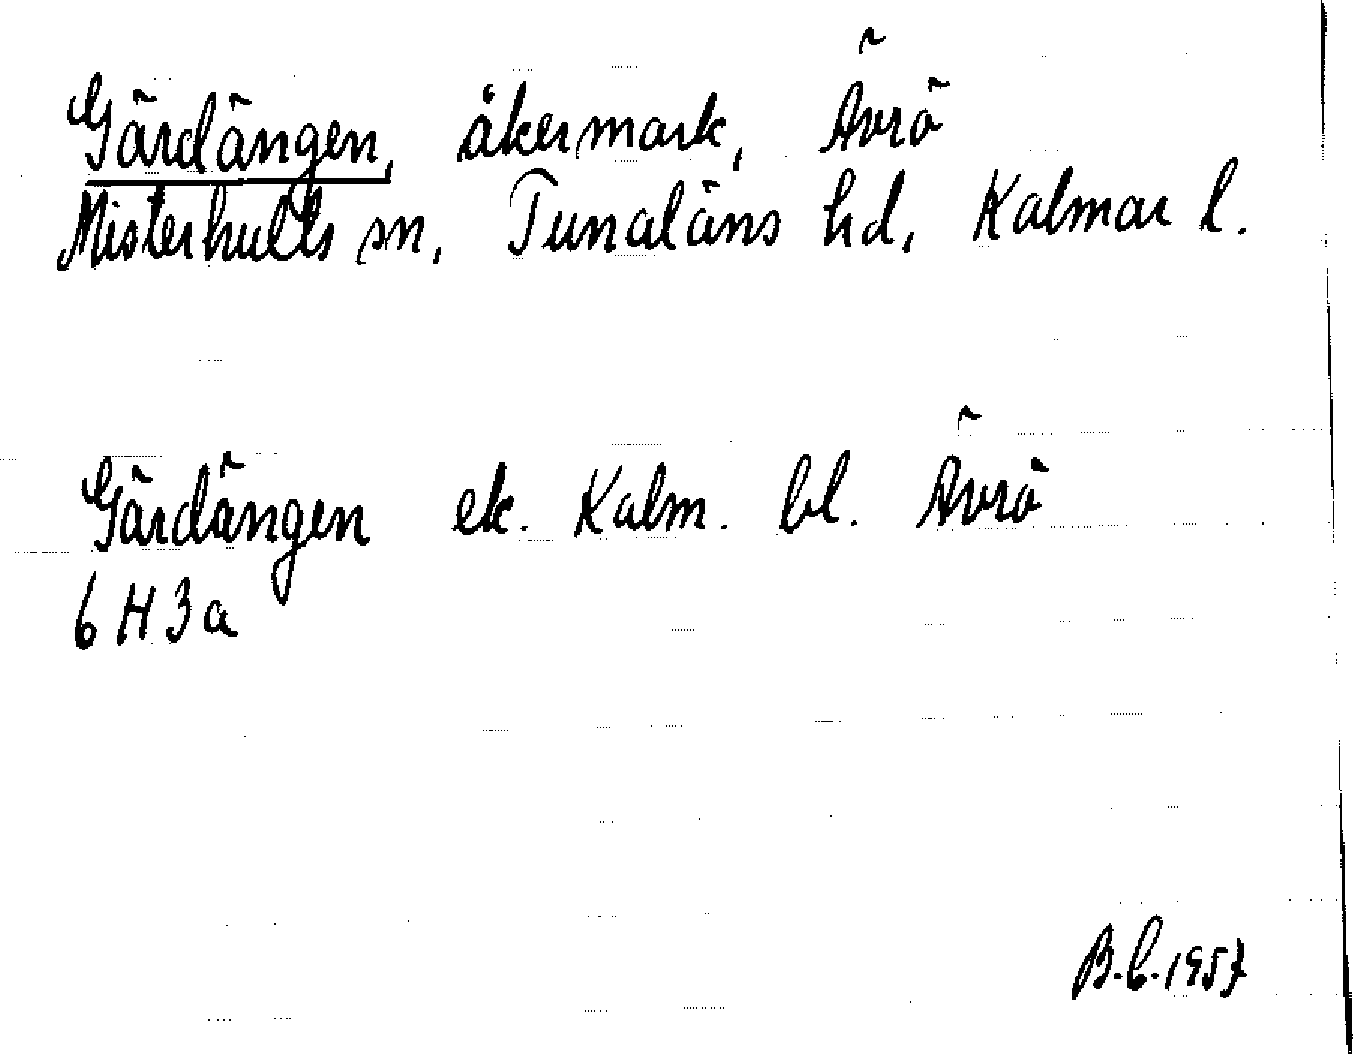 Gärdängen, åkermark, Ävrö
Misterhults sn, Tunaläns hd, Kalmar l.
Gärdängen ek. Kalm. bl. Ävrö
6 H 3 a
B.L. 1957